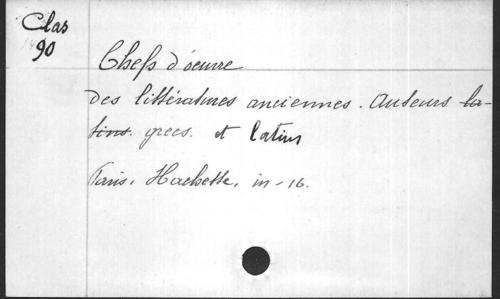 Clas
90
Chefs d'oeuvre
des littératures anciennes. Auteurs la-
tins. grecs. et latins
Paris, Hachette, in-16.